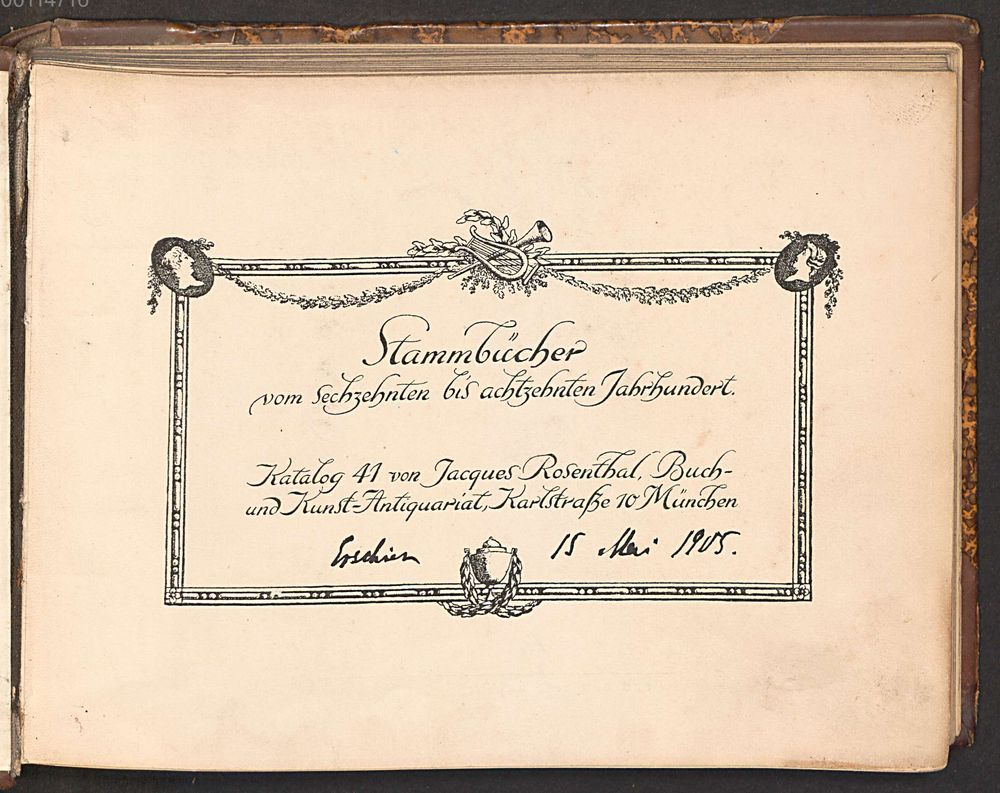 00114716
Stammbücher
vom sechzehnten bis achtzehnten Jahrhundert.
Katalog 41 von Jacques Rosenthal, Buch-
und Kunst-Antiquariat, Karlstraße 10 München
Erschien 15 Mai 1905.